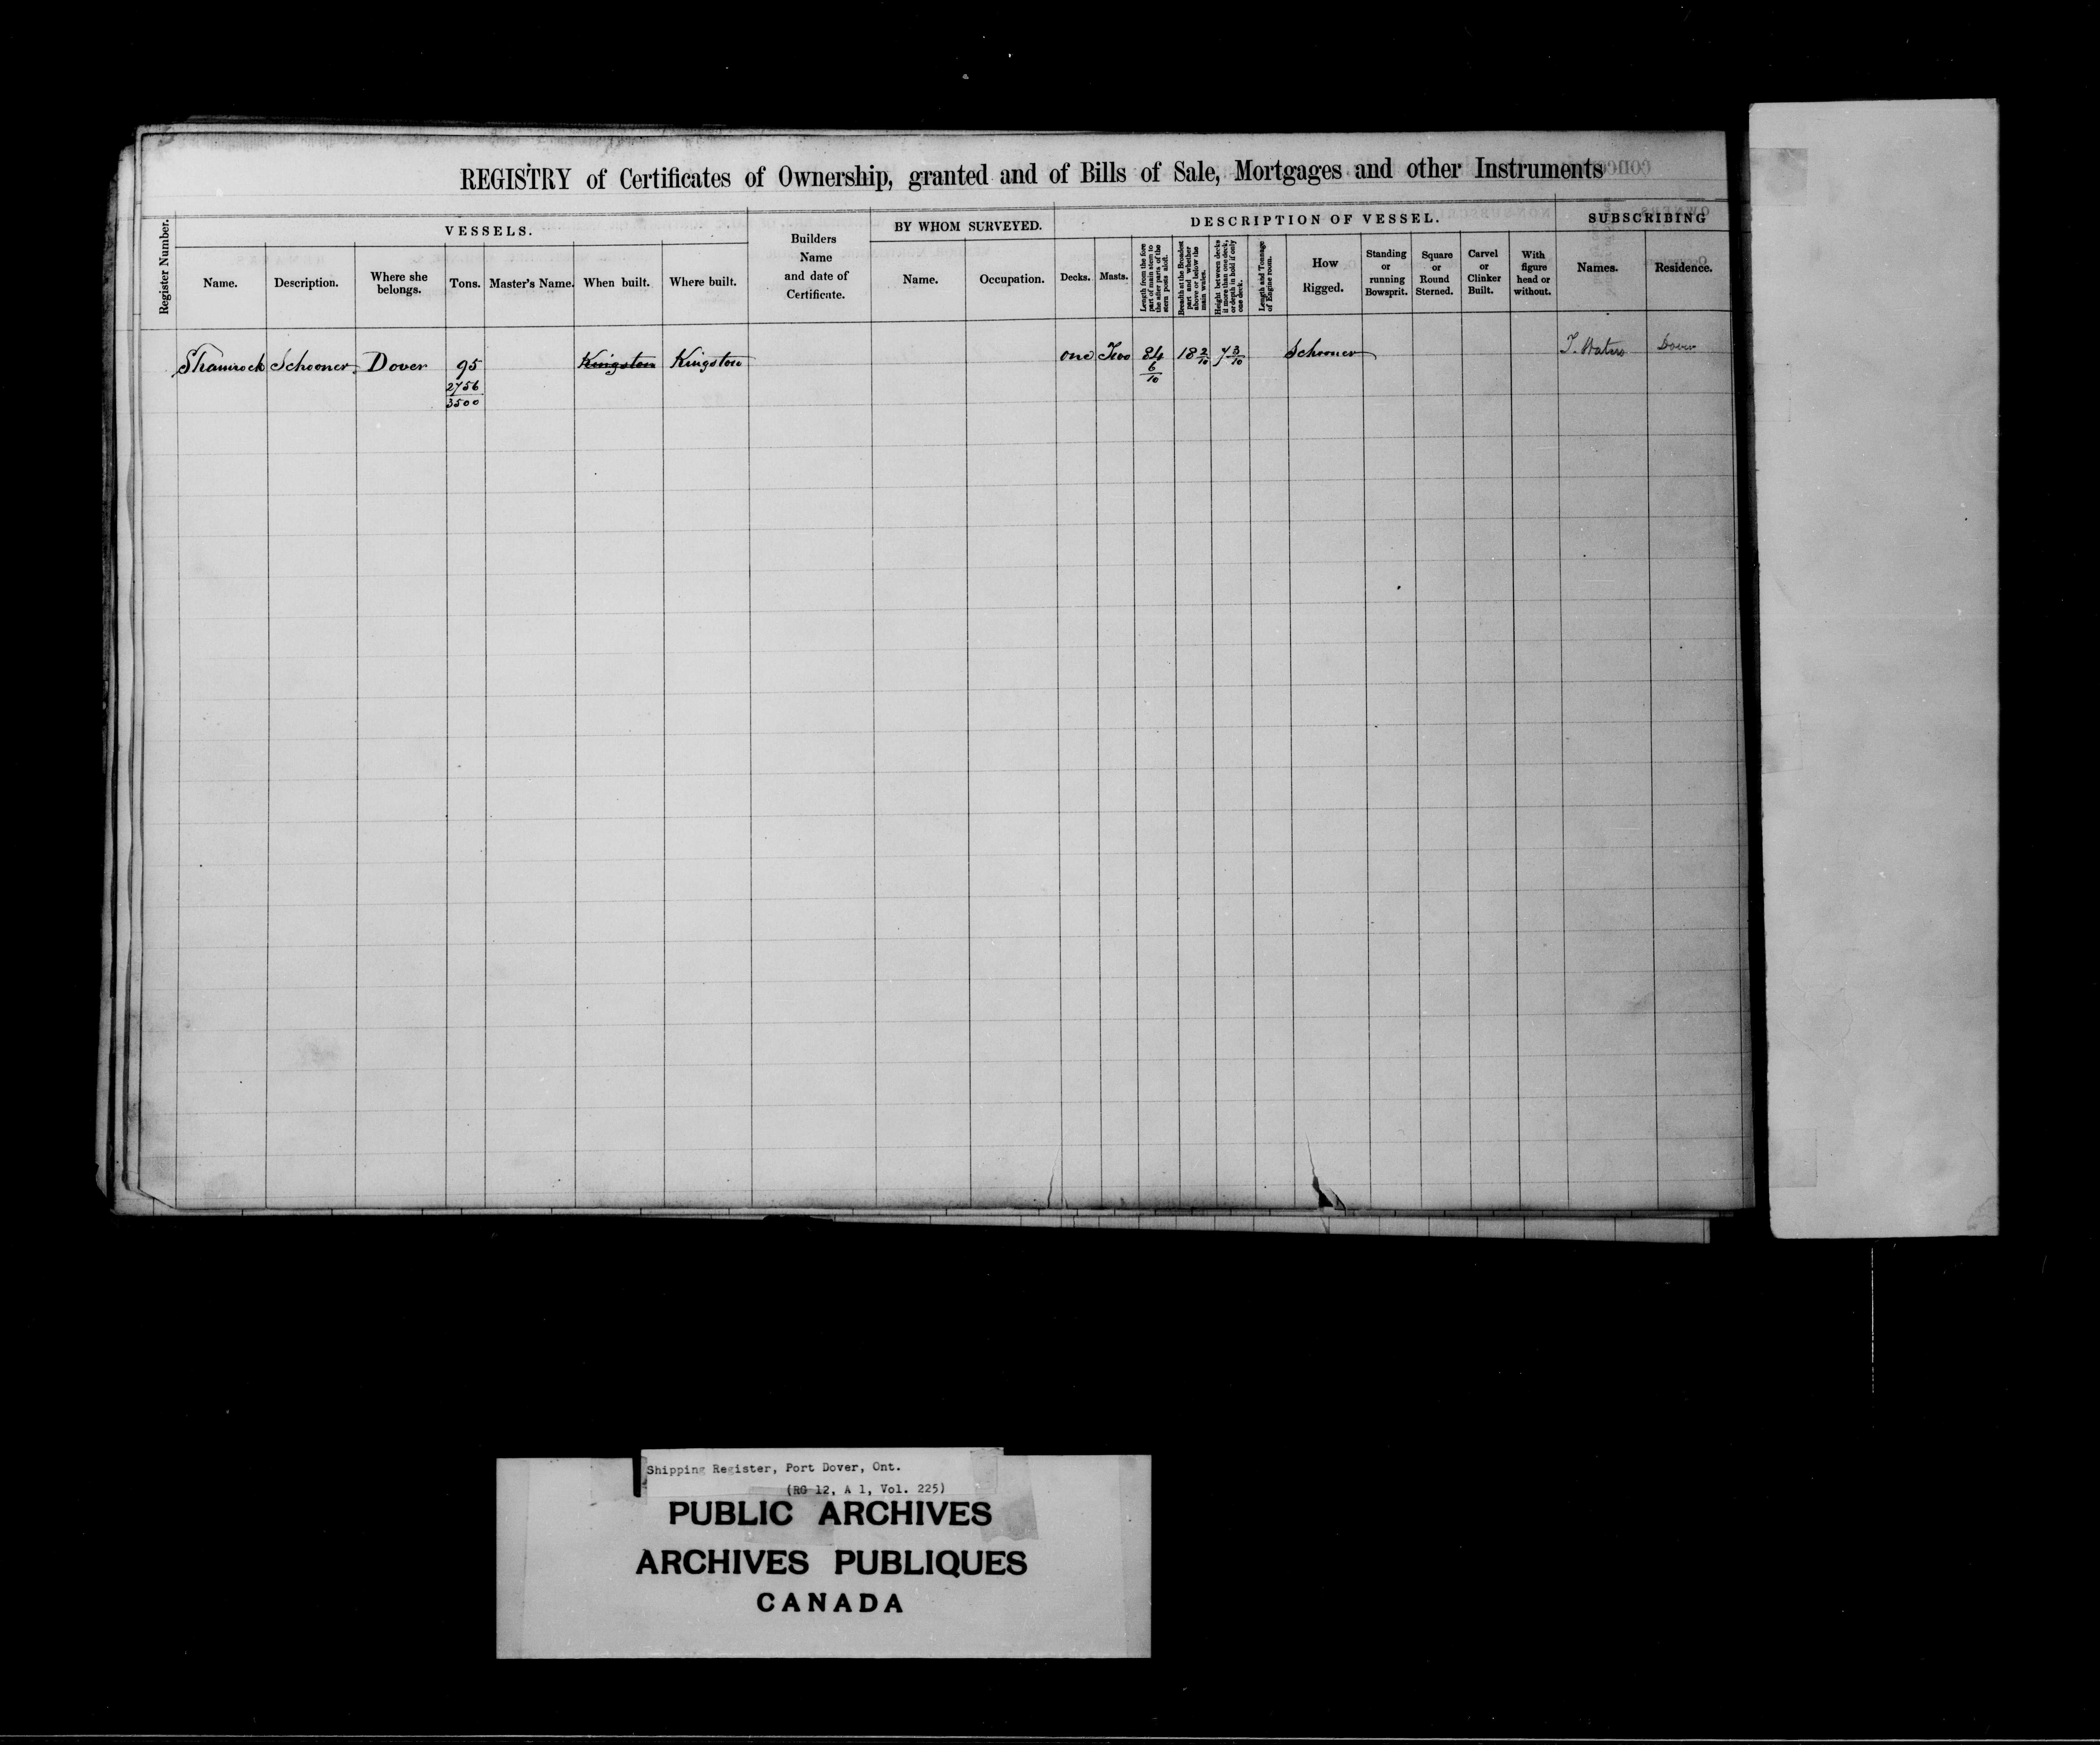 REGISTRY of Certificates of Ownership, granted and of Bills of Sale, Mortgages and other Instruments
Register Number.
VESSELS.
Name.
Description.
Where she
belongs.
Tons.
Master's Name.
When built.
Where built.
Builders
Name
and date of
Certificate.
BY WHOM SURVEYED.
Name.
Occupation.
DESCRIPTION OF VESSEL.
Decks.
Masts.
Length from the fore
part of main stem to
the after parts of the
stern posts aloft.
Breadth at the Broadest
part and whether
above or below the
main wales.
Height between decks
if more than one deck,
or depth in hold if only
one deck.
Length and Tonnage
of Engine room.
How
Rigged.
Standing
or
running
Bowsprit.
Square
or
Round
Sterned.
Carvel
or
Clinker
Built.
With
figure
head or
without.
SUBSCRIBING
Names.
Residence.
Shamrock Schooner Dover 95 2756/3500 Kingston Kingston one Two 84 6/10 18 2/10 7 3/10 Schooner T. Waters Dover
Shipping Register, Port Dover, Ont.
(RG 12, A 1, Vol. 225)
PUBLIC ARCHIVES
ARCHIVES PUBLIQUES
CANADA